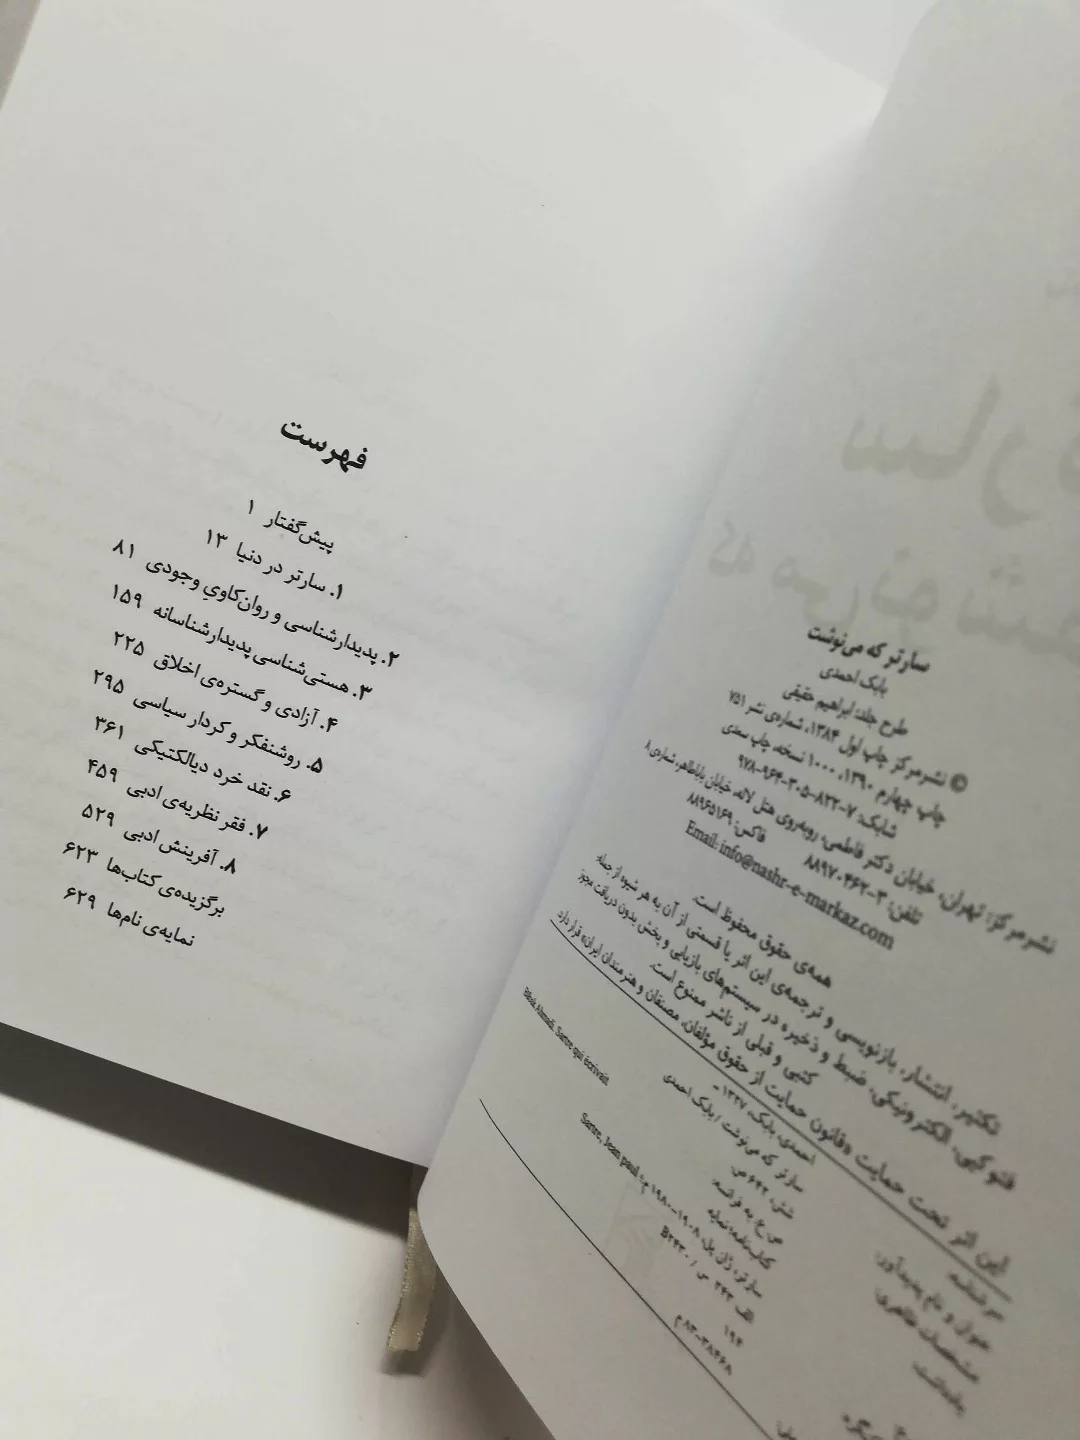 سارتر که می‌نوشت
بابک احمدی
طرح جلد: ابراهیم حقیقی
© نشرمرکز چاپ اول ۱۳۸۴، شماره‌ی نشر ۷۵۱
چاپ چهارم ۱۳۹۰، ۱۰۰۰ نسخه، چاپ سعدی
شابک: ۷-۸۲۲-۳۰۵-۹۶۴-۹۷۸
نشرمرکز: تهران، خیابان دکتر فاطمی، روبه‌روی هتل لاله، خیابان باباطاهر، شماره‌ی ۸
تلفن: ۳-۸۸۹۷۰۴۶۲ فاکس: ۸۸۹۶۵۱۶۹
Email: info@nashr-e-markaz.com
همه‌ی حقوق محفوظ است.
تکثیر، انتشار، بازنویسی و ترجمه‌ی این اثر یا قسمتی از آن به هر شیوه از جمله:
فتوکپی، الکترونیکی، ضبط و ذخیره در سیستم‌های بازیابی و پخش بدون دریافت مجوز
کتبی و قبلی از ناشر ممنوع است.
این اثر تحت حمایت «قانون حمایت از حقوق مؤلفان، مصنفان و هنرمندان ایران» قرار دارد.
سرشناسه: احمدی، بابک، ۱۳۲۷ـ
عنوان و نام پدیدآور: سارتر که می‌نوشت / بابک احمدی
مشخصات ظاهری: شش، ۶۴۲ ص.
یادداشت: ص.ع. به فرانسه:
Bâbak Ahmadi. Sartre qui écrivait.
کتاب‌نامه؛ نمایه
سارتر، ژان پل، ۱۹۰۸-۱۹۸۰ م.
Sartre, Jean paul
B۲۴۳۰ / الف ۳۴۳ س
۱۹۴
۸۳-۳۸۴۶۸ م
فهرست
پیش‌گفتار ۱
۱. سارتر در دنیا ۱۳
۲. پدیدارشناسی و روان‌کاویِ وجودی ۸۱
۳. هستی‌شناسی پدیدارشناسانه ۱۵۹
۴. آزادی و گستره‌ی اخلاق ۲۲۵
۵. روشنفکر و کردار سیاسی ۲۹۵
۶. نقد خرد دیالکتیکی ۳۶۱
۷. فقر نظریه‌ی ادبی ۴۵۹
۸. آفرینش ادبی ۵۲۹
برگزیده‌ی کتاب‌ها ۶۲۳
نمایه‌ی نام‌ها ۶۲۹